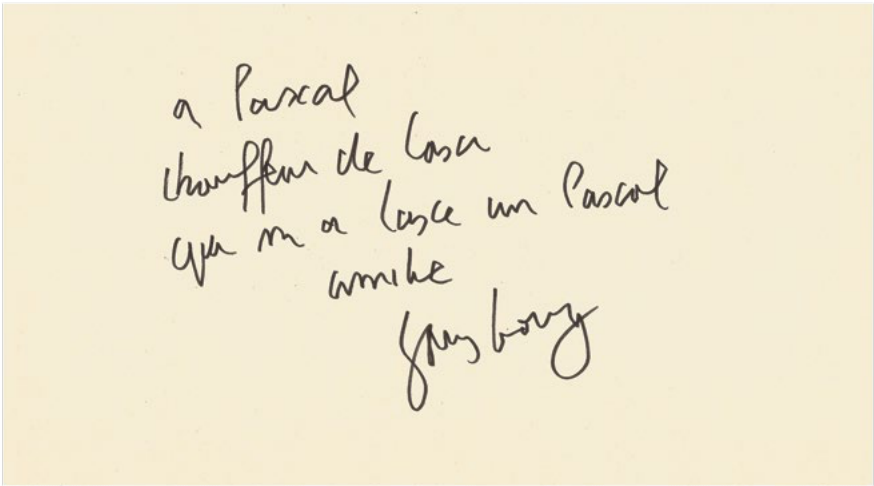 a Pascal
chauffeur de taxi
qui m a taxé un Pascal
amitié
Gainsbourg